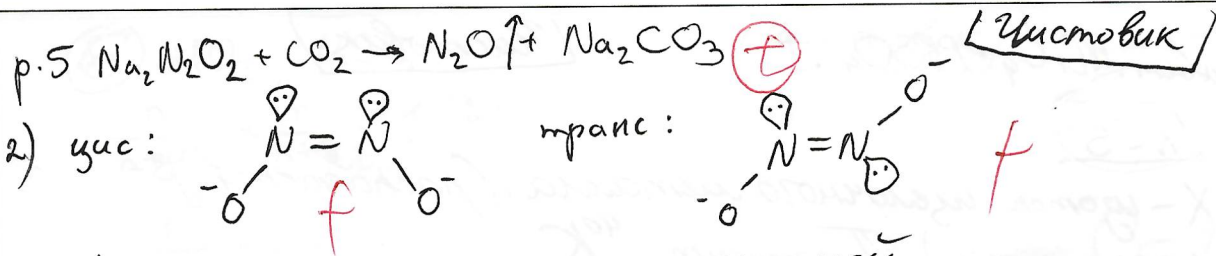 [Чистовик]
р.5 Na₂N₂O₂ + CO₂ → N₂O↑ + Na₂CO₃ +
2) цис: N = N ⁻O O⁻ транс: N = N ⁻O O⁻
+ +